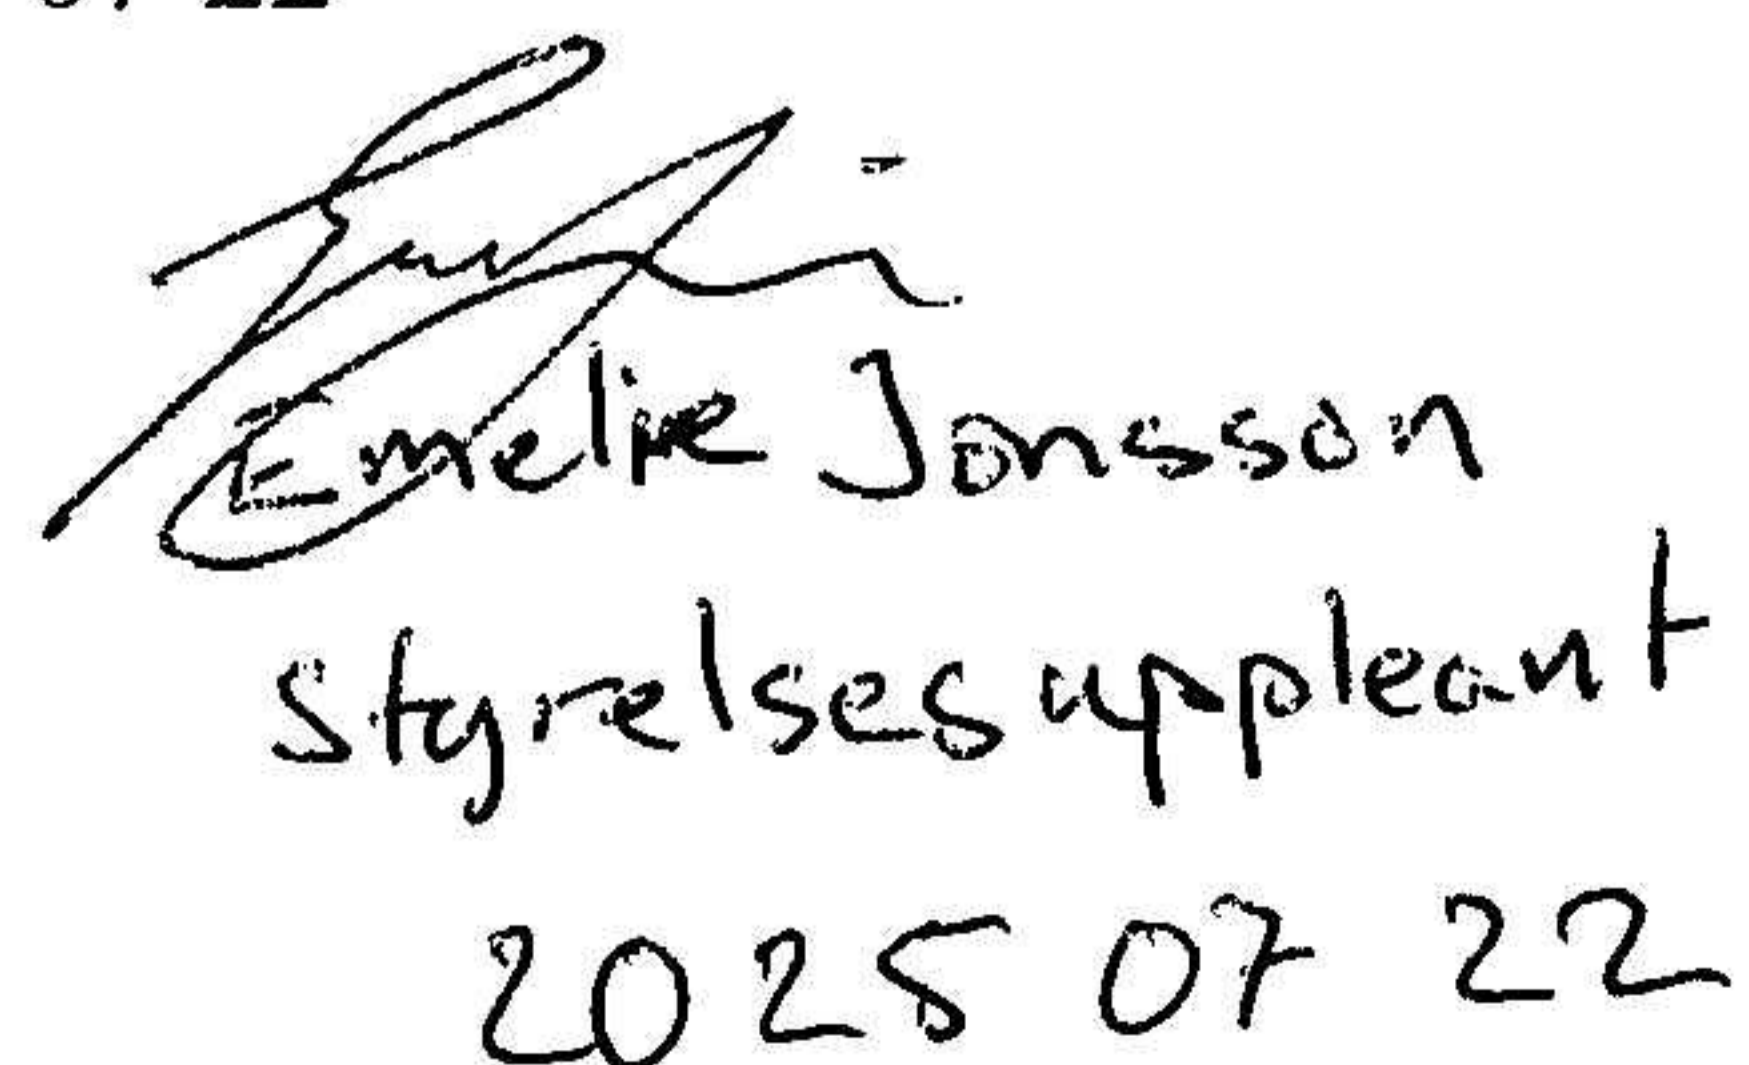 Emelie Jonsson
Styrelsesuppleant
2025 07 22